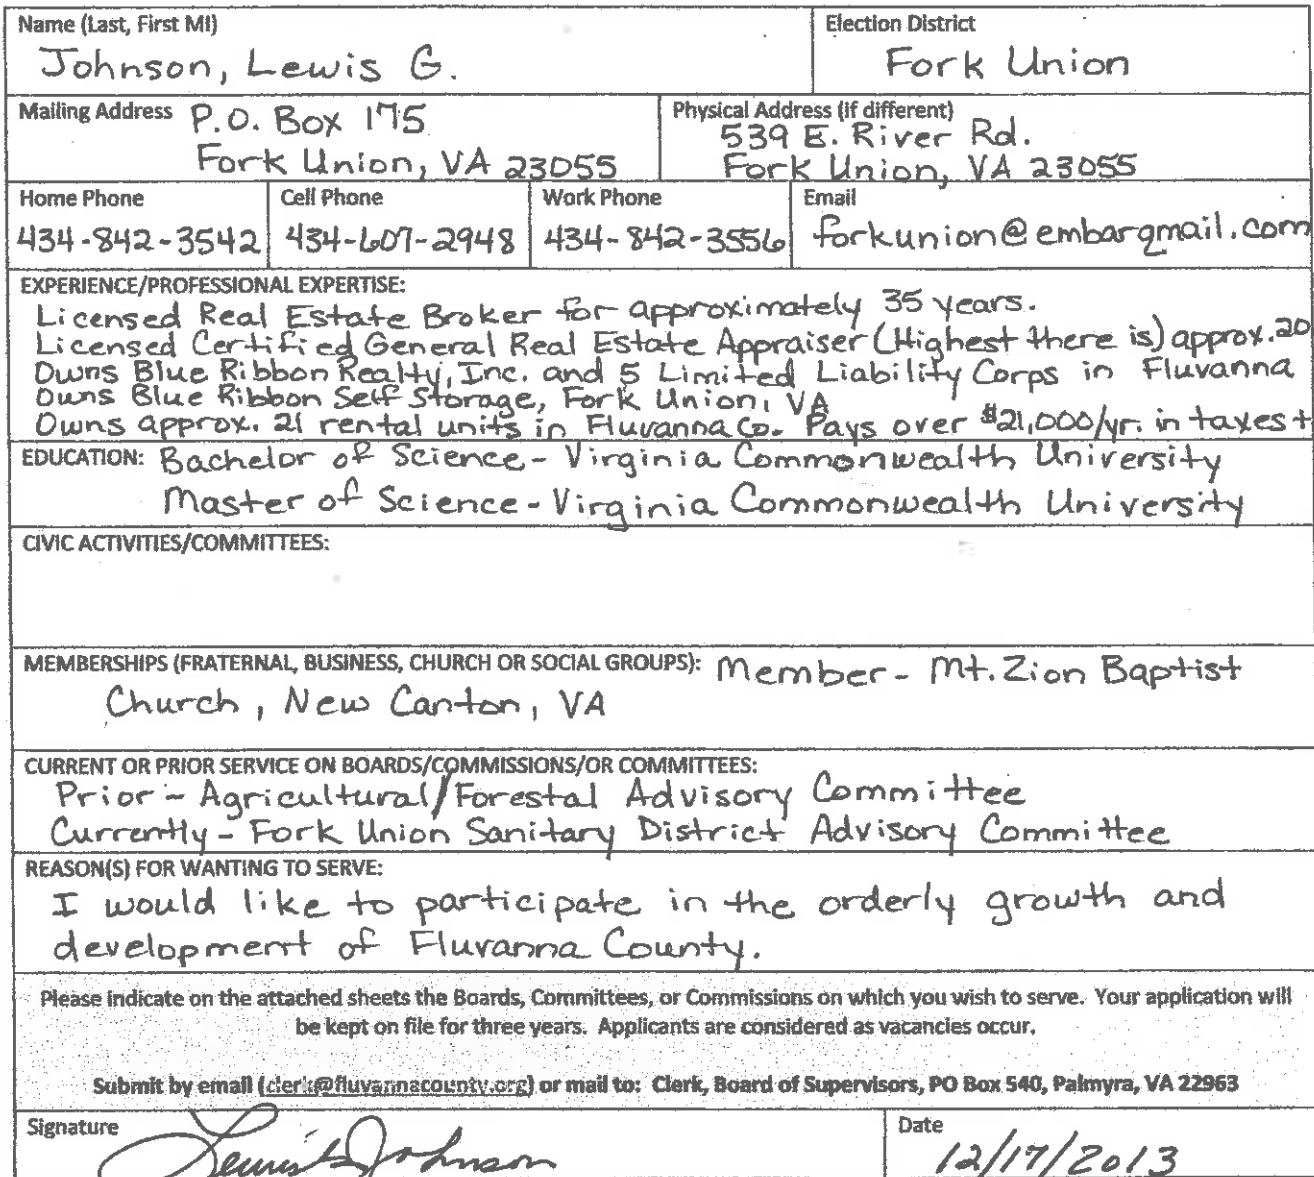 Name (Last, First MI)
Johnson, Lewis G.
Election District
Fork Union
Mailing Address P.O. Box 175
Fork Union, VA 23055
Physical Address (if different)
539 E. River Rd.
Fork Union, VA 23055
Home Phone
434-842-3542
Cell Phone
434-607-2948
Work Phone
434-842-3556
Email
forkunion@embarqmail.com
EXPERIENCE/PROFESSIONAL EXPERTISE:
Licensed Real Estate Broker for approximately 35 years.
Licensed Certified General Real Estate Appraiser (Highest there is) approx. 20
Owns Blue Ribbon Realty, Inc. and 5 Limited Liability Corps in Fluvanna
Owns Blue Ribbon Self Storage, Fork Union, VA
Owns approx. 21 rental units in Fluvanna Co. Pays over $21,000/yr. in taxes +
EDUCATION: Bachelor of Science - Virginia Commonwealth University
Master of Science - Virginia Commonwealth University
CIVIC ACTIVITIES/COMMITTEES:
MEMBERSHIPS (FRATERNAL, BUSINESS, CHURCH OR SOCIAL GROUPS): Member - Mt. Zion Baptist
Church, New Canton, VA
CURRENT OR PRIOR SERVICE ON BOARDS/COMMISSIONS/OR COMMITTEES:
Prior - Agricultural/Forestal Advisory Committee
Currently - Fork Union Sanitary District Advisory Committee
REASON(S) FOR WANTING TO SERVE:
I would like to participate in the orderly growth and
development of Fluvanna County.
Please indicate on the attached sheets the Boards, Committees, or Commissions on which you wish to serve. Your application will
be kept on file for three years. Applicants are considered as vacancies occur.
Submit by email (clerk@fluvannacounty.org) or mail to: Clerk, Board of Supervisors, PO Box 540, Palmyra, VA 22963
Signature
Lewis G Johnson
Date
12/17/2013